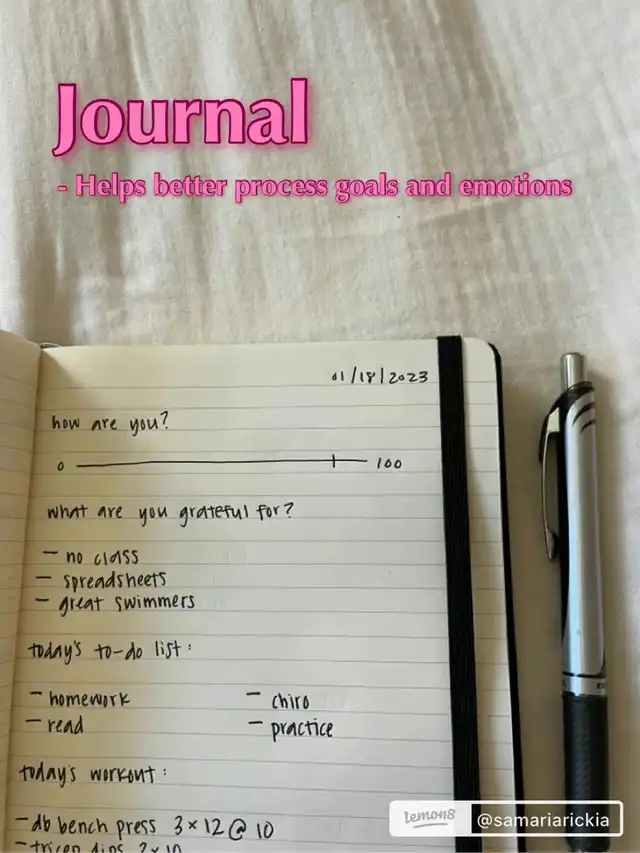 Journal
- Helps better process goals and emotions
01/18/2023
how are you?
0 100
what are you grateful for?
- no class
- spreadsheets
- great swimmers
today's to-do list:
- homework - chiro
- read - practice
today's workout:
- db bench press 3x12 @ 10
- tricep dips 2x10
lemon8 @samariarickia